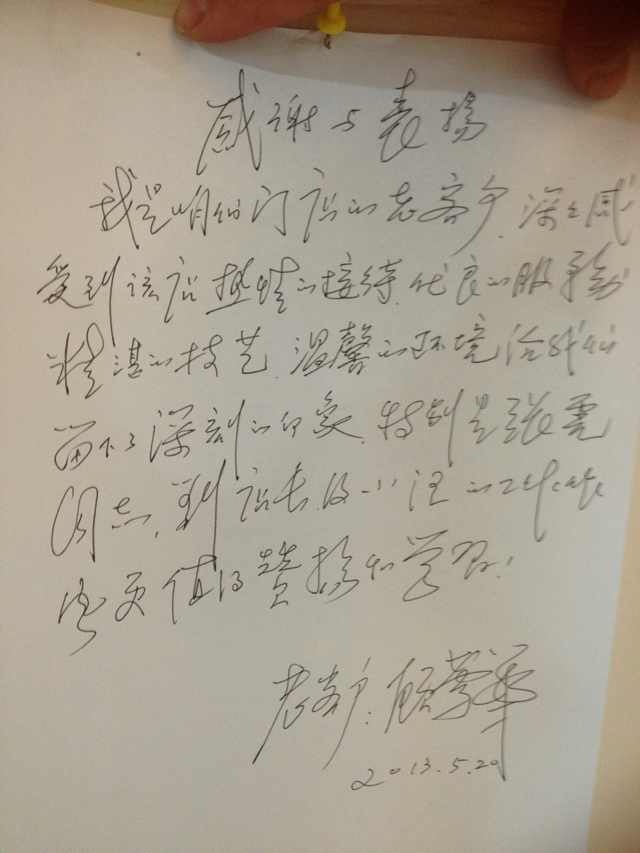 感谢与表扬
我是咱们门店的老客户,深之感
受到该店热情的接待,优良的服务
精湛的技艺,温馨的环境给我们
留下了深刻的印象,特别是张雲
同志,刘店长及小汪的工作
更值得赞扬和学习!
老客户:顾
2013.5.20